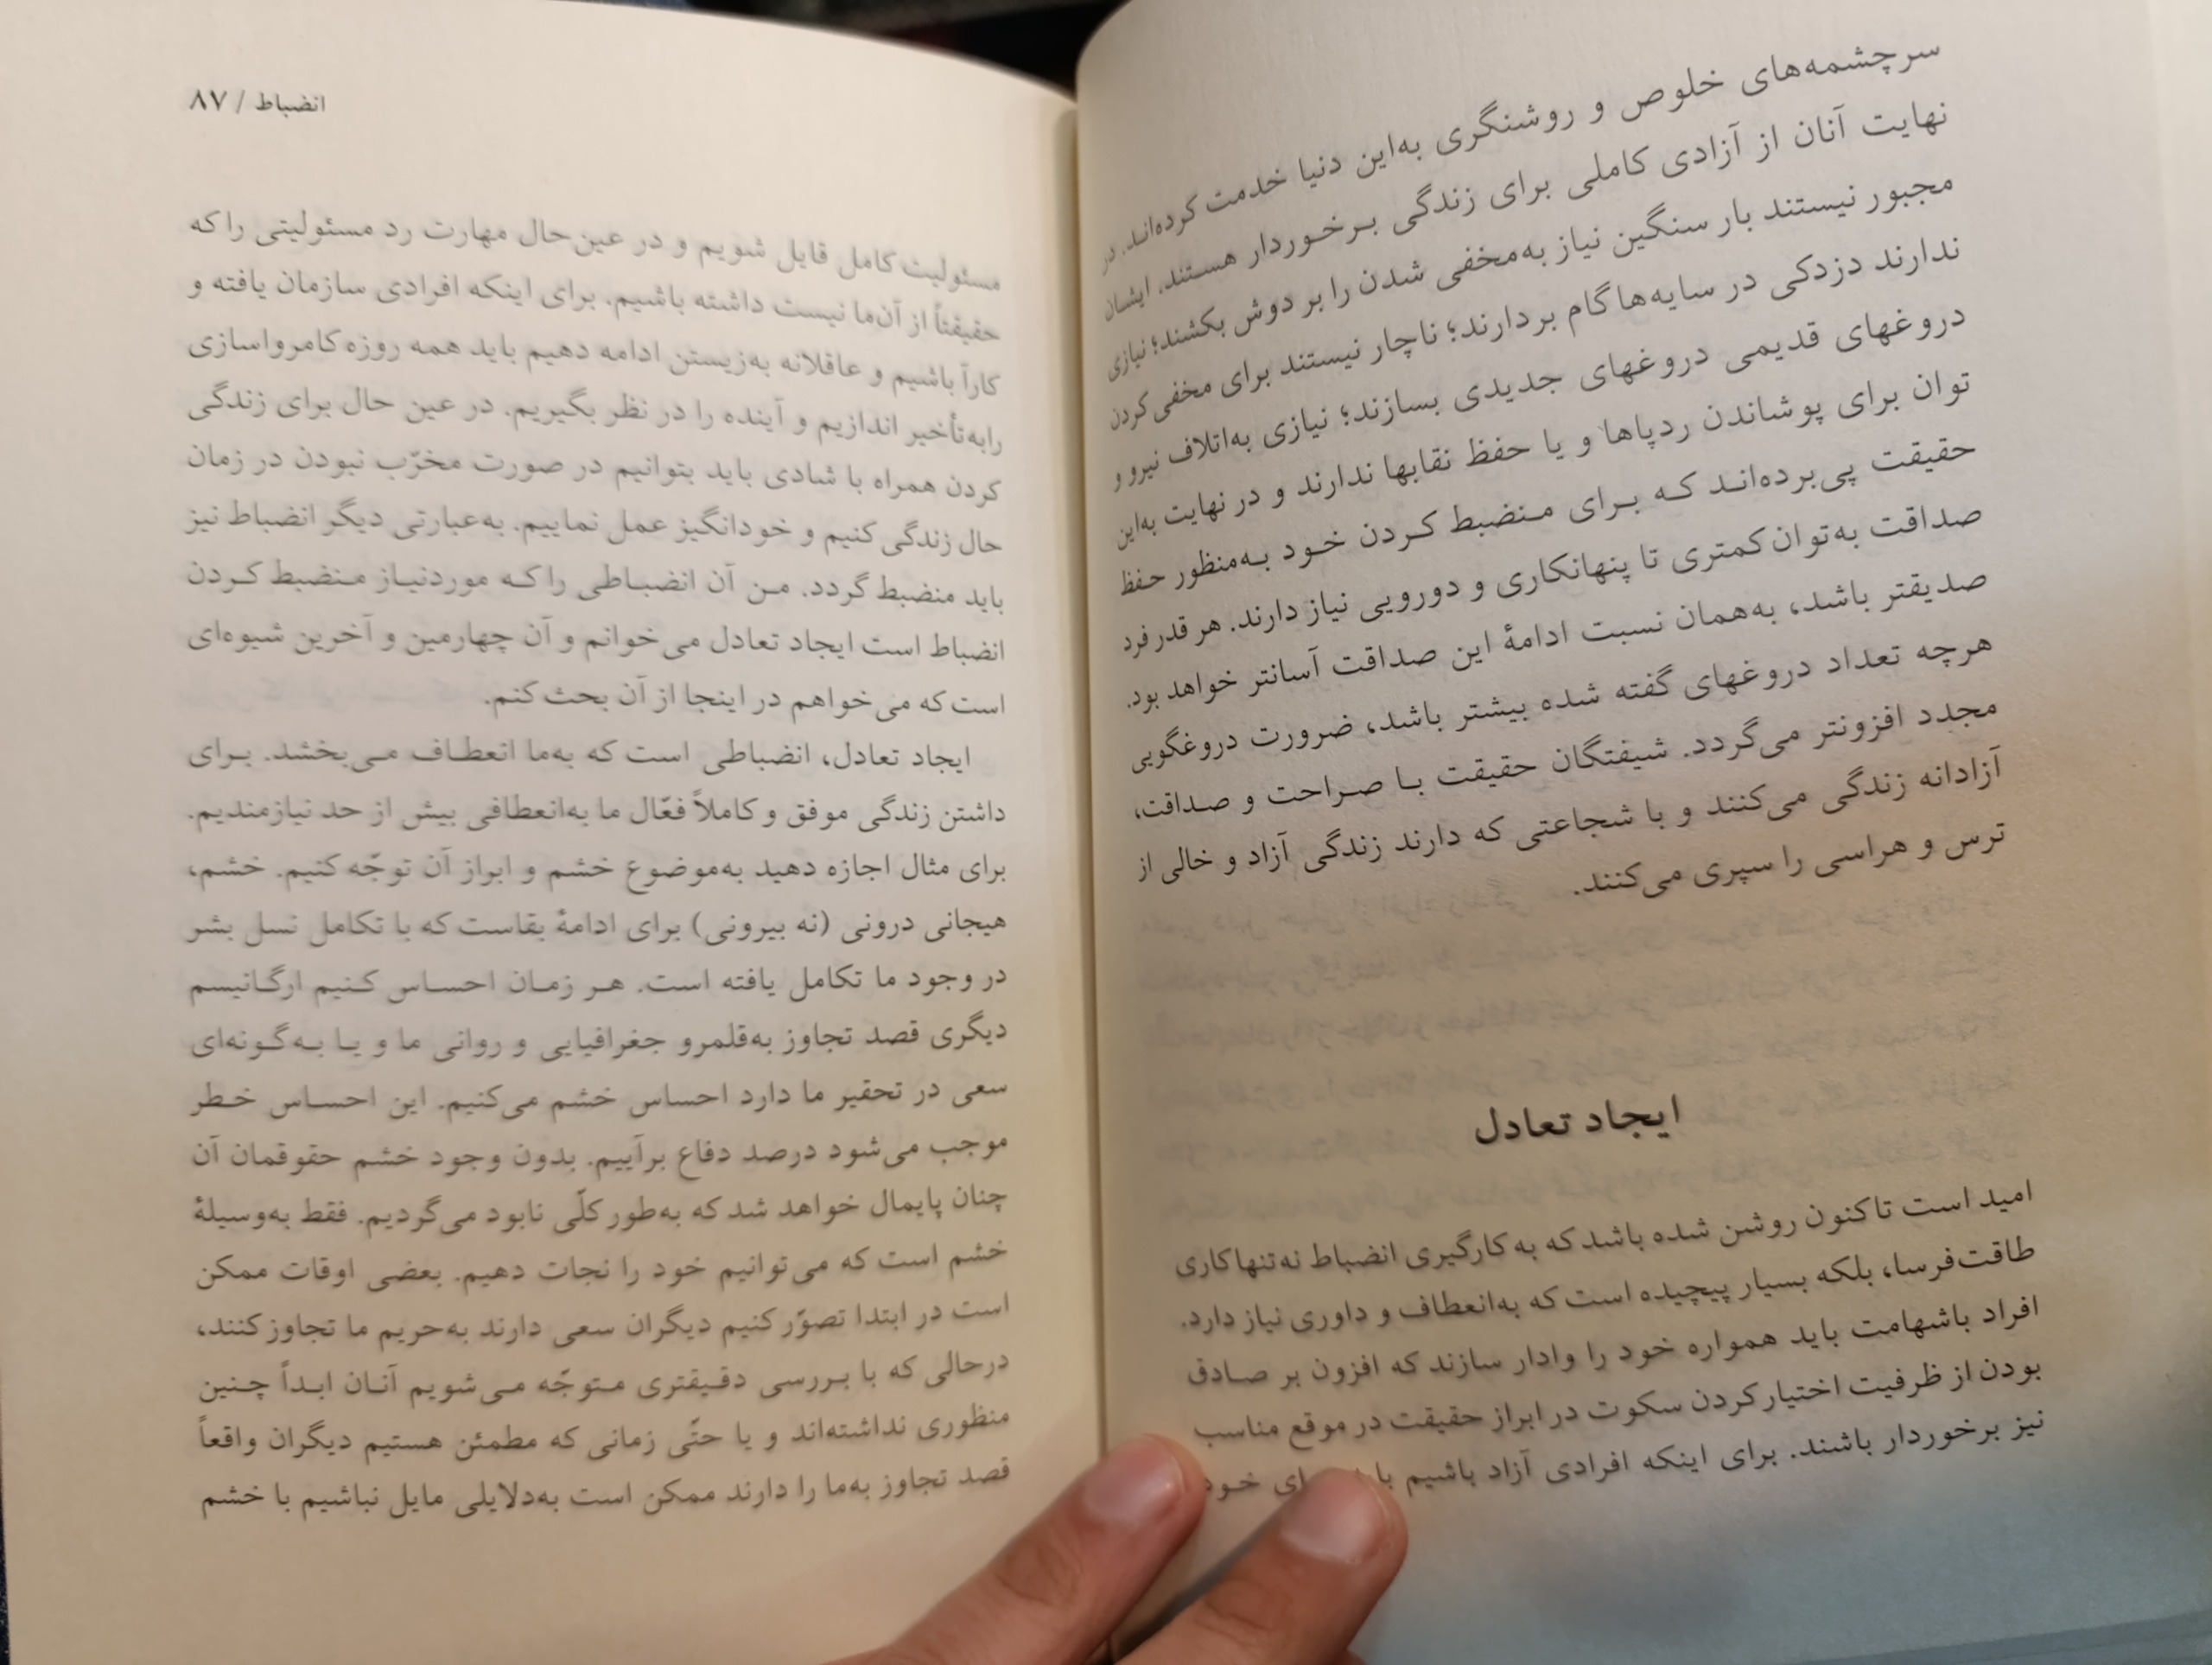 سرچشمه‌های خلوص و روشنگری به‌این دنیا خدمت کرده‌اند. در
نهایت آنان از آزادی کاملی برای زندگی برخوردار هستند. ایشان
مجبور نیستند بار سنگین نیاز به‌مخفی شدن را بر دوش بکشند؛ نیازی
ندارند دزدکی در سایه‌ها گام بردارند؛ ناچار نیستند برای مخفی کردن
دروغهای قدیمی دروغهای جدیدی بسازند؛ نیازی به‌اتلاف نیرو و
توان برای پوشاندن ردپاها و یا حفظ نقابها ندارند و در نهایت به‌این
حقیقت پی‌برده‌اند که برای منضبط کردن خود به‌منظور حفظ
صداقت به‌توان کمتری تا پنهانکاری و دورویی نیاز دارند. هر قدر فرد
صدیقتر باشد، به‌همان نسبت ادامهٔ این صداقت آسانتر خواهد بود.
هرچه تعداد دروغهای گفته شده بیشتر باشد، ضرورت دروغگویی
مجدد افزونتر می‌گردد. شیفتگان حقیقت با صراحت و صداقت،
آزادانه زندگی می‌کنند و با شجاعتی که دارند زندگی آزاد و خالی از
ترس و هراسی را سپری می‌کنند.
ایجاد تعادل
امید است تاکنون روشن شده باشد که به کارگیری انضباط نه‌تنها کاری
طاقت‌فرسا، بلکه بسیار پیچیده است که به‌انعطاف و داوری نیاز دارد.
افراد باشهامت باید همواره خود را وادار سازند که افزون بر صادق
بودن از ظرفیت اختیار کردن سکوت در ابراز حقیقت در موقع مناسب
نیز برخوردار باشند. برای اینکه افرادی آزاد باشیم خود
انضباط / ۸۷
مسئولیت کامل قایل شویم و در عین‌حال مهارت رد مسئولیتی را که
حقیقتاً از آن‌ما نیست داشته باشیم. برای اینکه افرادی سازمان یافته و
کارآ باشیم و عاقلانه به‌زیستن ادامه دهیم باید همه روزه کامرواسازی
رابه‌تأخیر اندازیم و آینده را در نظر بگیریم. در عین حال برای زندگی
کردن همراه با شادی باید بتوانیم در صورت مخرّب نبودن در زمان
حال زندگی کنیم و خودانگیز عمل نماییم. به‌عبارتی دیگر انضباط نیز
باید منضبط گردد. من آن انضباطی را که موردنیاز منضبط کردن
انضباط است ایجاد تعادل می‌خوانم و آن چهارمین و آخرین شیوه‌ای
است که می‌خواهم در اینجا از آن بحث کنم.
ایجاد تعادل، انضباطی است که به‌ما انعطاف می‌بخشد. برای
داشتن زندگی موفق و کاملاً فعّال ما به‌انعطافی بیش از حد نیازمندیم.
برای مثال اجازه دهید به‌موضوع خشم و ابراز آن توجّه کنیم. خشم،
هیجانی درونی (نه بیرونی) برای ادامهٔ بقاست که با تکامل نسل بشر
در وجود ما تکامل یافته است. هر زمان احساس کنیم ارگانیسم
دیگری قصد تجاوز به‌قلمرو جغرافیایی و روانی ما و یا به‌گونه‌ای
سعی در تحقیر ما دارد احساس خشم می‌کنیم. این احساس خطر
موجب می‌شود درصد دفاع برآییم. بدون وجود خشم حقوقمان آن
چنان پایمال خواهد شد که به‌طور کلّی نابود می‌گردیم. فقط به‌وسیلهٔ
خشم است که می‌توانیم خود را نجات دهیم. بعضی اوقات ممکن
است در ابتدا تصوّر کنیم دیگران سعی دارند به‌حریم ما تجاوز کنند،
درحالی که با بررسی دقیقتری متوجّه می‌شویم آنان ابداً چنین
منظوری نداشته‌اند و یا حتّی زمانی که مطمئن هستیم دیگران واقعاً
قصد تجاوز به‌ما را دارند ممکن است به‌دلایلی مایل نباشیم با خشم